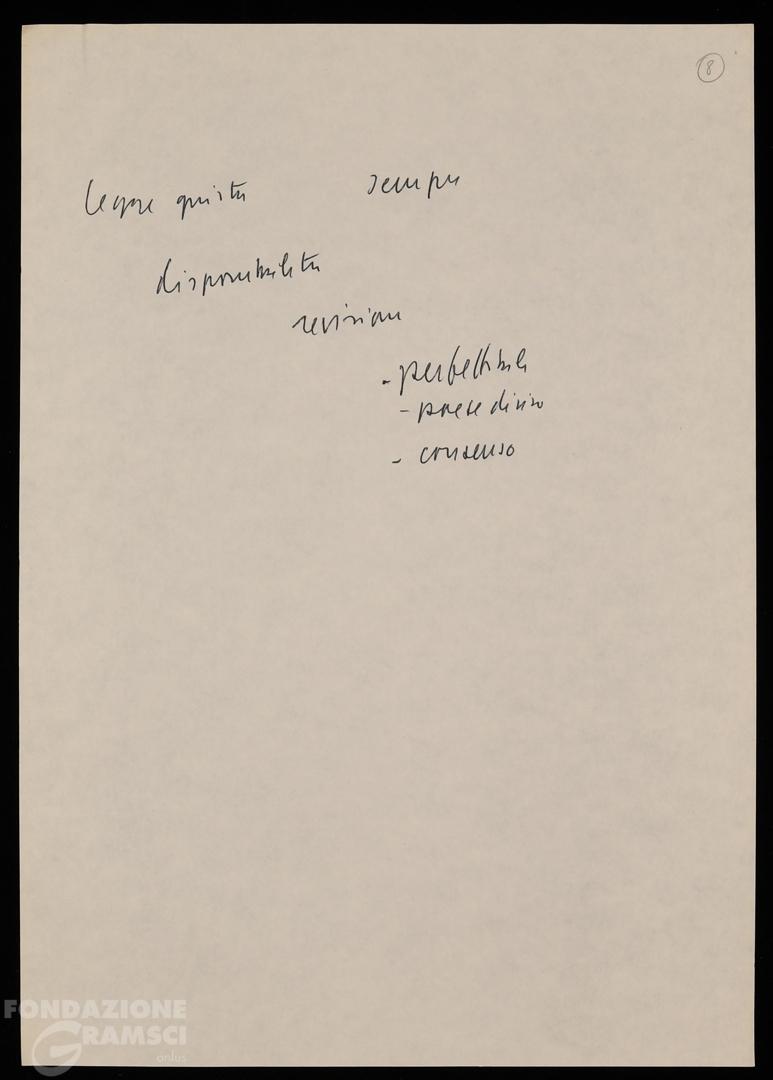 8
legge giusta sempre
disponibilità
revisione
- perfettibile
- paese diviso
- consenso
FONDAZIONE
GRAMSCI
onlus